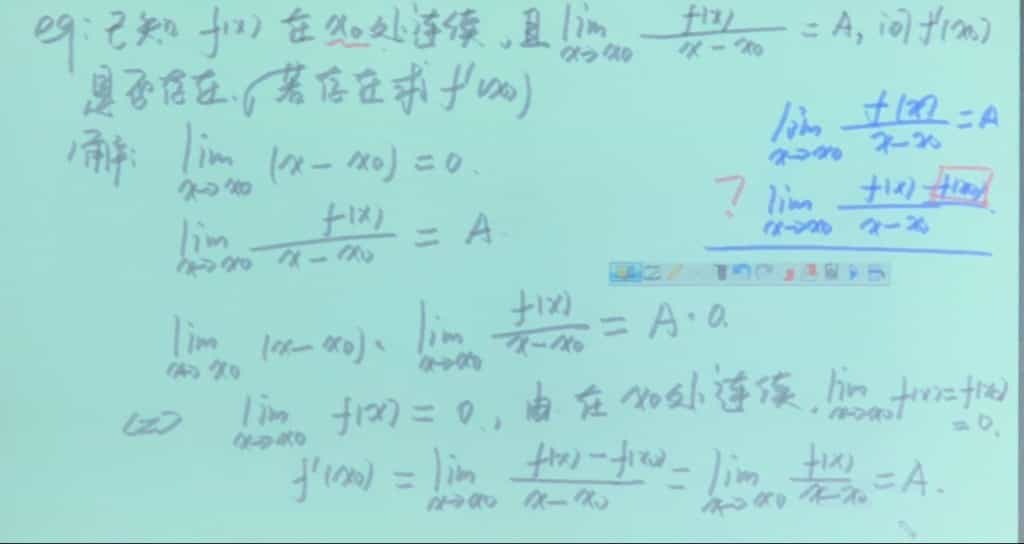 eg: 已知 f(x) 在 x₀ 处连续, 且 lim_{x→x₀} f(x)/(x-x₀) = A, 问 f'(x₀)
是否存在. (若存在求 f'(x₀))
解: lim_{x→x₀} (x-x₀) = 0.
lim_{x→x₀} f(x)/(x-x₀) = A.
lim_{x→x₀} (x-x₀)· lim_{x→x₀} f(x)/(x-x₀) = A·0.
lim_{x→x₀} f(x) = 0, 由 在 x₀ 处 连续. lim_{x→x₀} f(x) = f(x₀)
= 0.
f'(x₀) = lim_{x→x₀} (f(x)-f(x₀))/(x-x₀) = lim_{x→x₀} f(x)/(x-x₀) = A.
lim_{x→x₀} f(x)/(x-x₀) = A
? lim_{x→x₀} (f(x)-f(x₀))/(x-x₀)